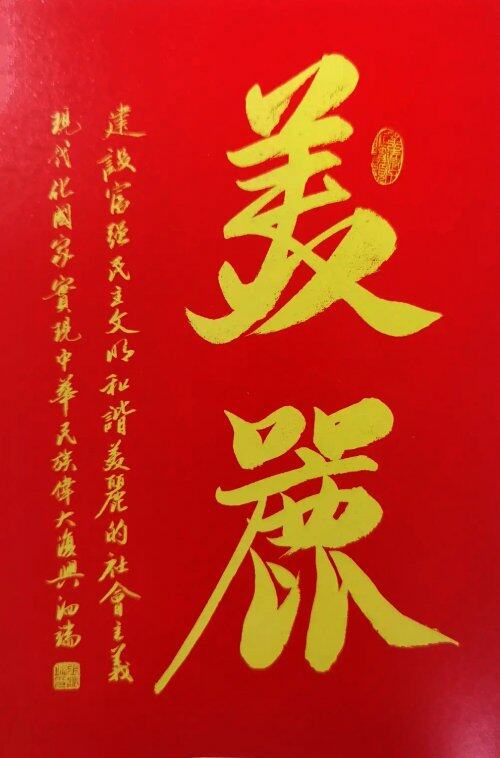 美麗
建設富强民主文明和諧美麗的社會主義
現代化國家實現中華民族偉大復興